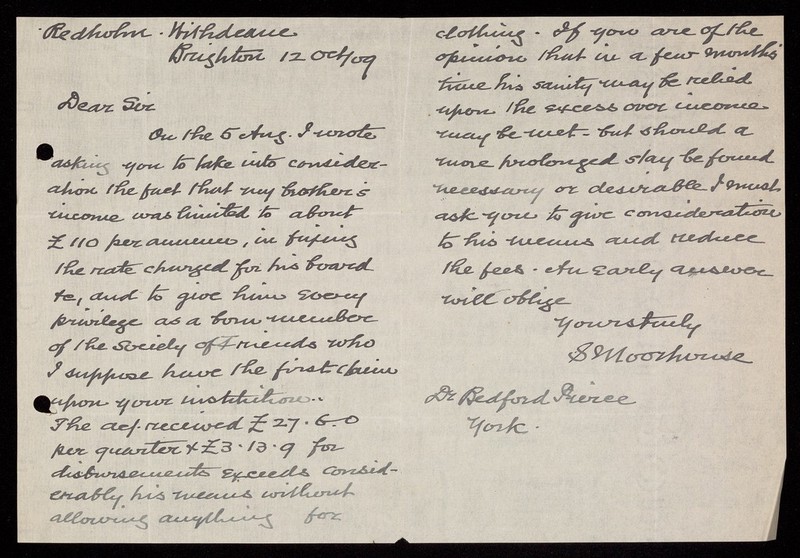 Redholm. Withdeane
Brighton 12 Oct/09
Dear Sir
On the 5 Aug. I wrote
asking you to take into consider-
ation the fact that my brother's
income was limited to about
£110 per annum, in fixing
the rate charged for his board
&c, and to give him every
privilege as a born member
of the Society of Friends who
I suppose have the first claim
upon your institution..
The acf. received £27.6.0
per quarter & £3.13.9 for
disbursements exceeds consid-
erably his means without
allowing anything for
clothing. If you are of the
opinion that in a few months
time his sanity may be relied
upon the excess over income
may be met - but should a
more prolonged stay be found
necessary or desirable I must
ask you to give consideration
to his means and reduce
the fees. An early answer
will oblige
Yours truly
S Moorhouse
Dr Bedford Pierce
York.